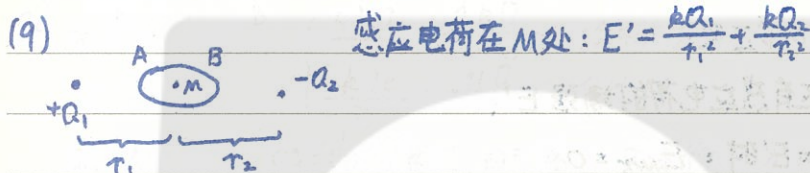 (9)
感应电荷在M处：E'=kQ₁/r₁²+kQ₂/r₂²
A B
·M
+Q₁ -Q₂
r₁ r₂